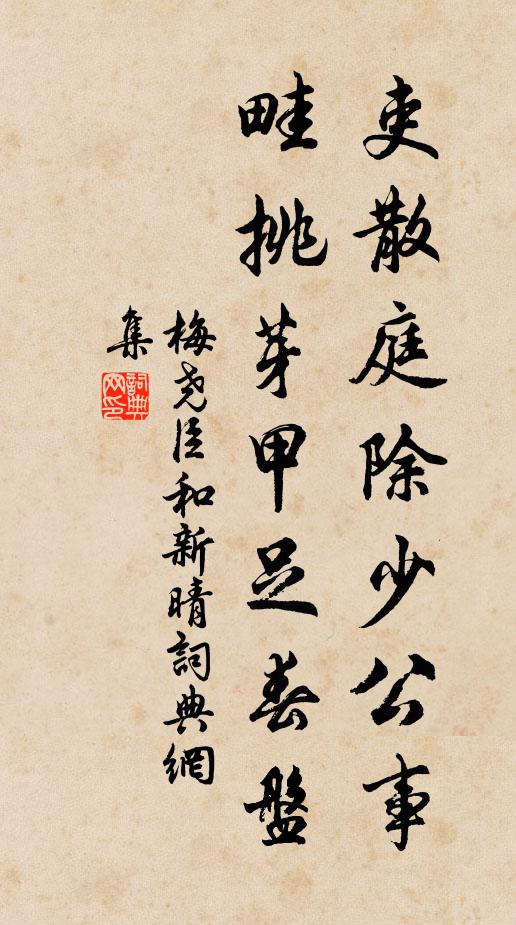 吏散庭除少公事
畦挑芽甲足春盤
梅堯臣和新晴詞典網
集
詞典網印